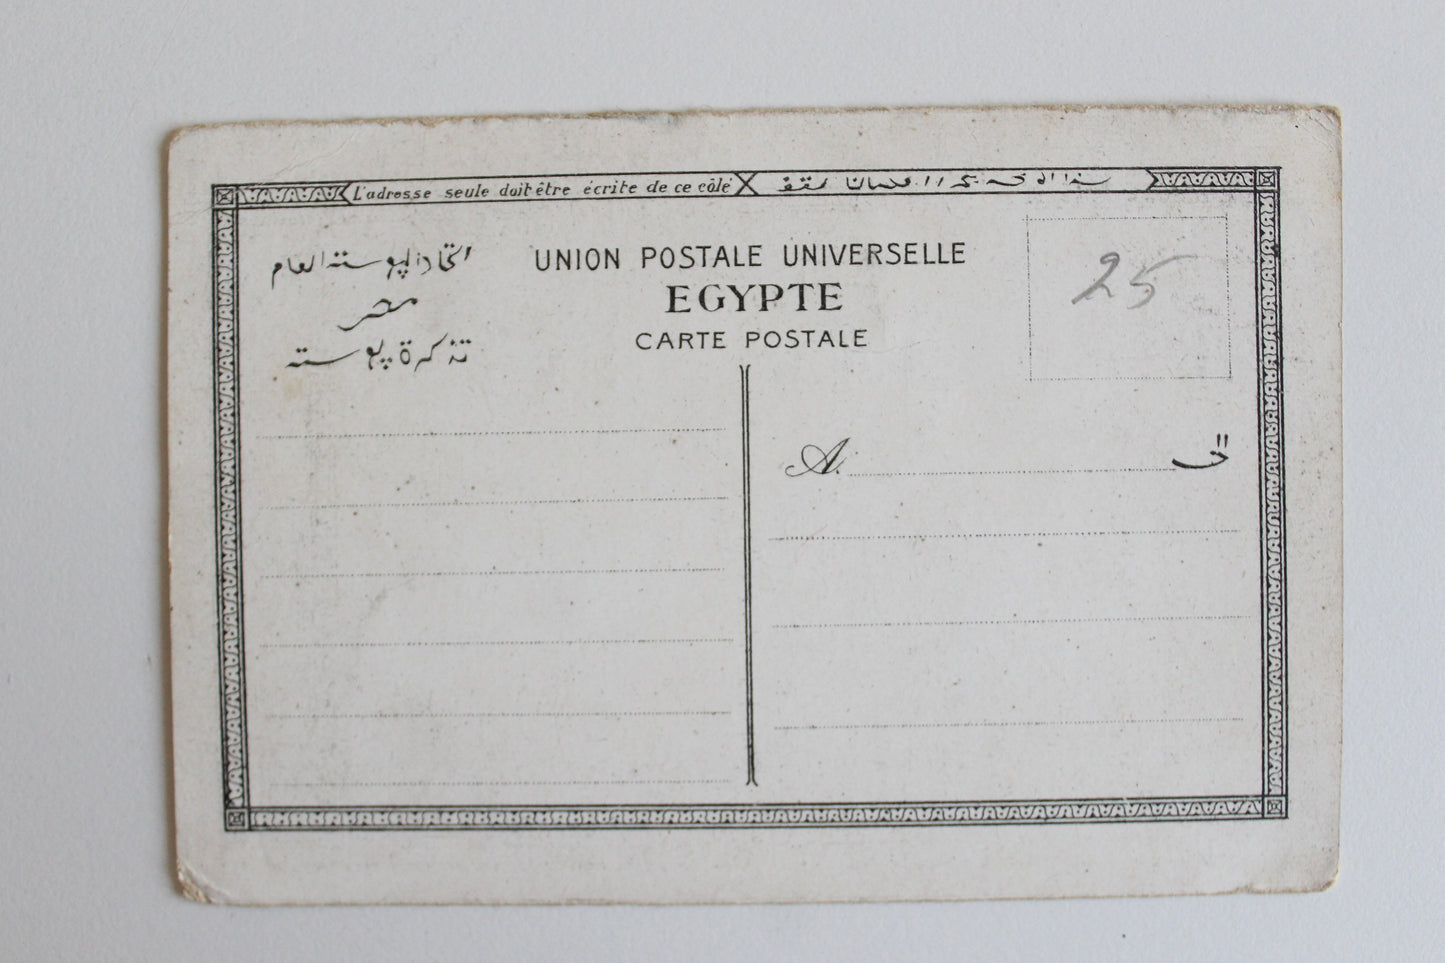 L'adresse seule doit être écrite de ce côté
UNION POSTALE UNIVERSELLE
EGYPTE
CARTE POSTALE
اتحاد البوسته العام
مصر
تذكرة بوسته
25
A.